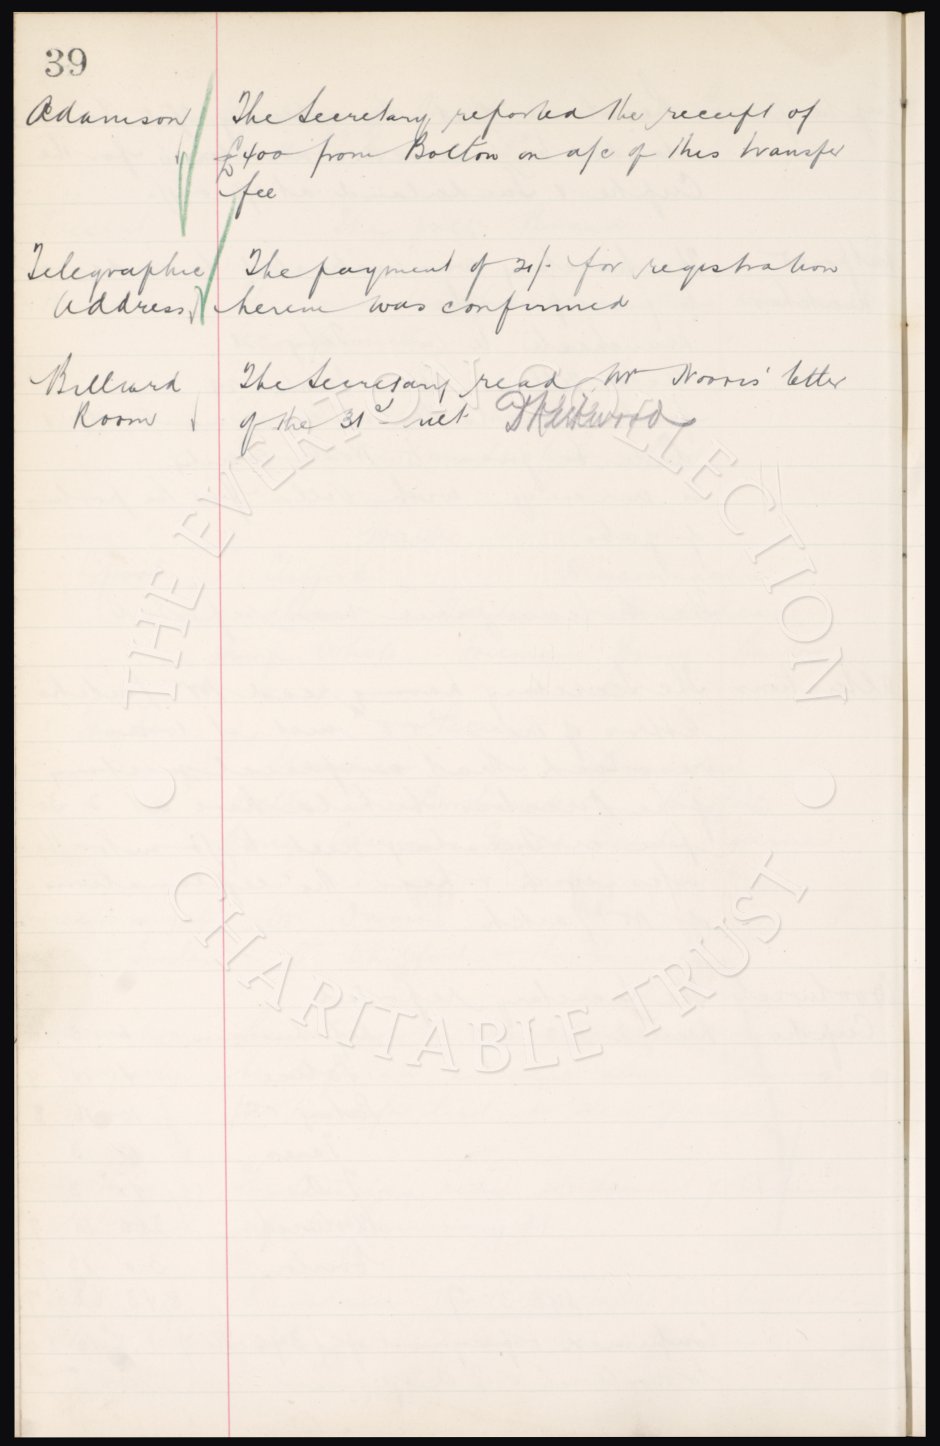 39
Adamson The Secretary reported the receipt of
£400 from Bolton on a/c of this transfer
fee
Telegraphic The payment of 21/- for registration
Address herein was confirmed
Billiard The Secretary read Mr Norris' letter
Room of the 31st ult D Kirkwood
THE EVERTON COLLECTION
CHARITABLE TRUST